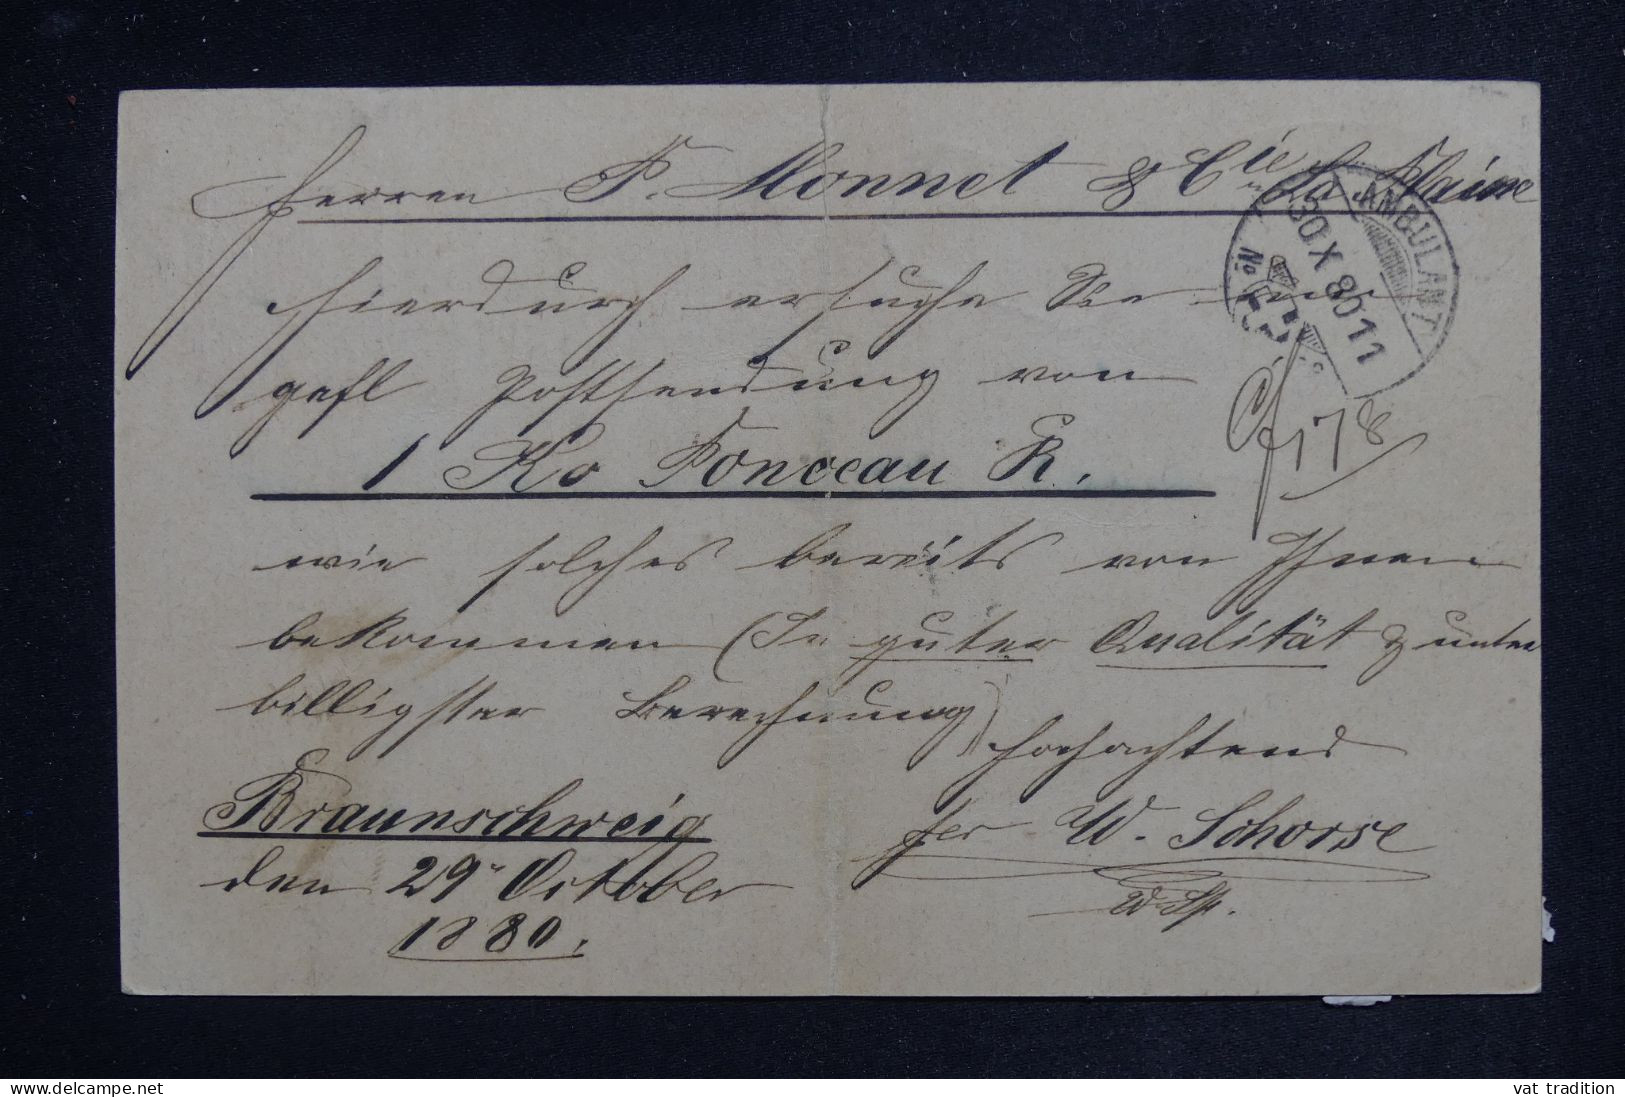 Herren P. Monnet & Cie La Plaine
Hierdurch ersuche Sie um
gefl Postsendung von
1 Ko Fonceau R.
wie solches bereits von Ihnen
bekommen (In guter Qualität & unter
billigster Berechnung)
Hochachtend
Braunschweig
per W. Schorse
den 29 October
1880.
AMBULANT
30 X 80 11
No
178
vat tradition
www.delcampe.net